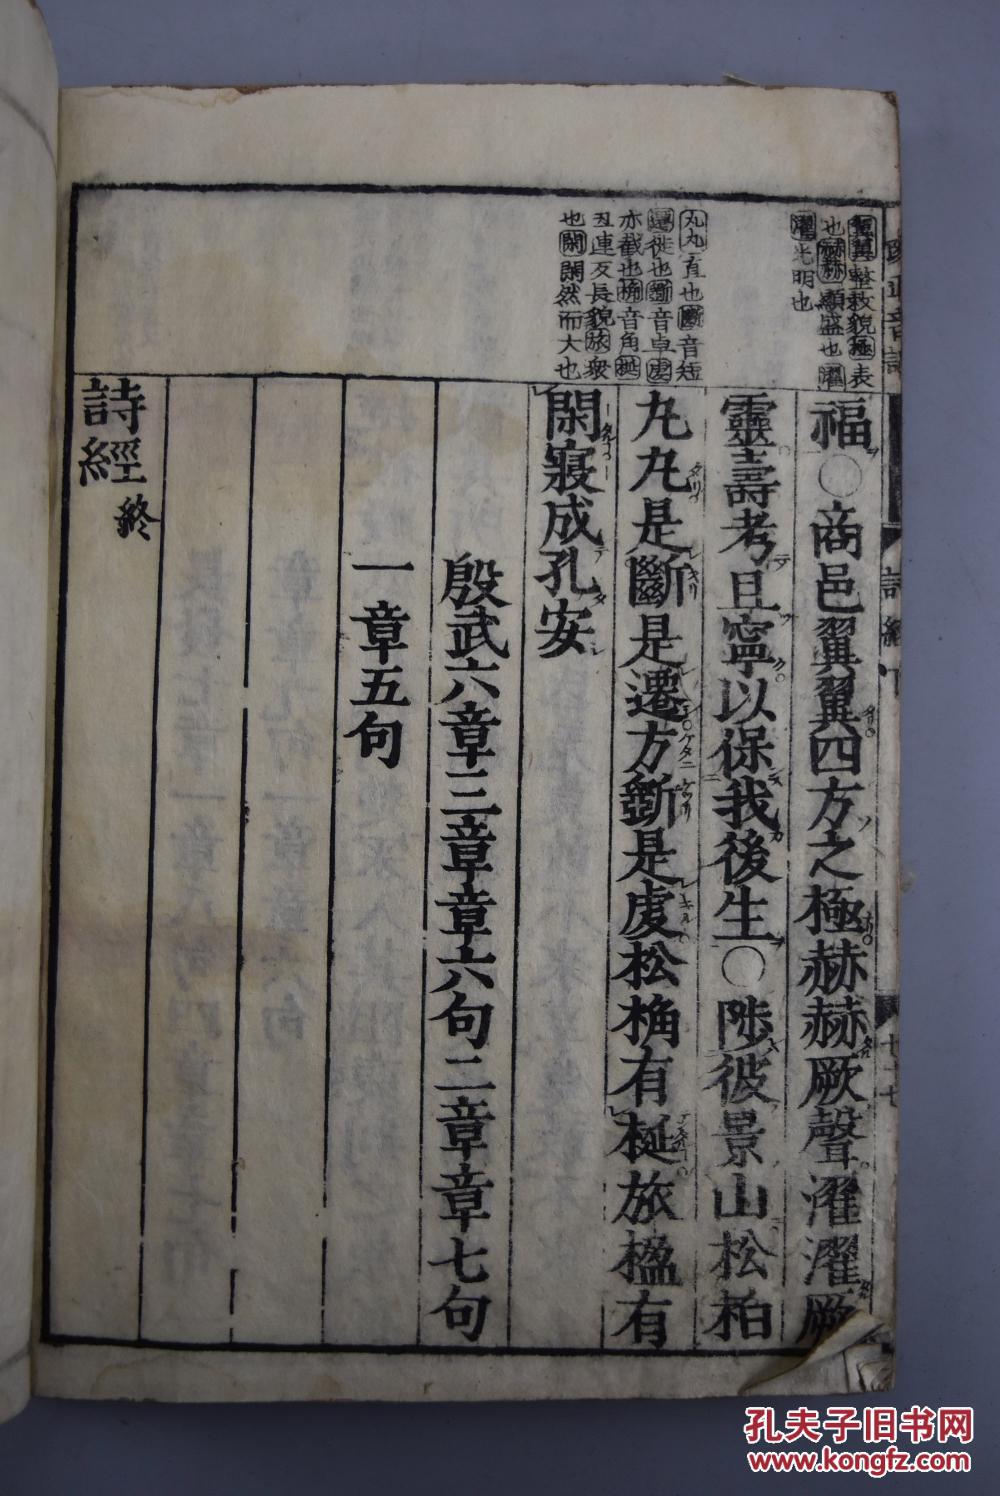 翼翼整敕貌極表
也赫赫顯盛也濯
濯光明也
丸丸直也斷音短
遷徙也斲音卓虔
亦截也桷音角梴
丑連反長貌旅衆
也閑閑然而大也
福○商邑翼翼四方之極赫赫厥聲濯濯厥
靈壽考且寧以保我後生○陟彼景山松柏
丸丸是斷是遷方斲是虔松桷有梴旅楹有
閑寢成孔安
殷武六章三章章六句二章章七句
一章五句
詩經終
孔夫子旧书网
www.kongfz.com